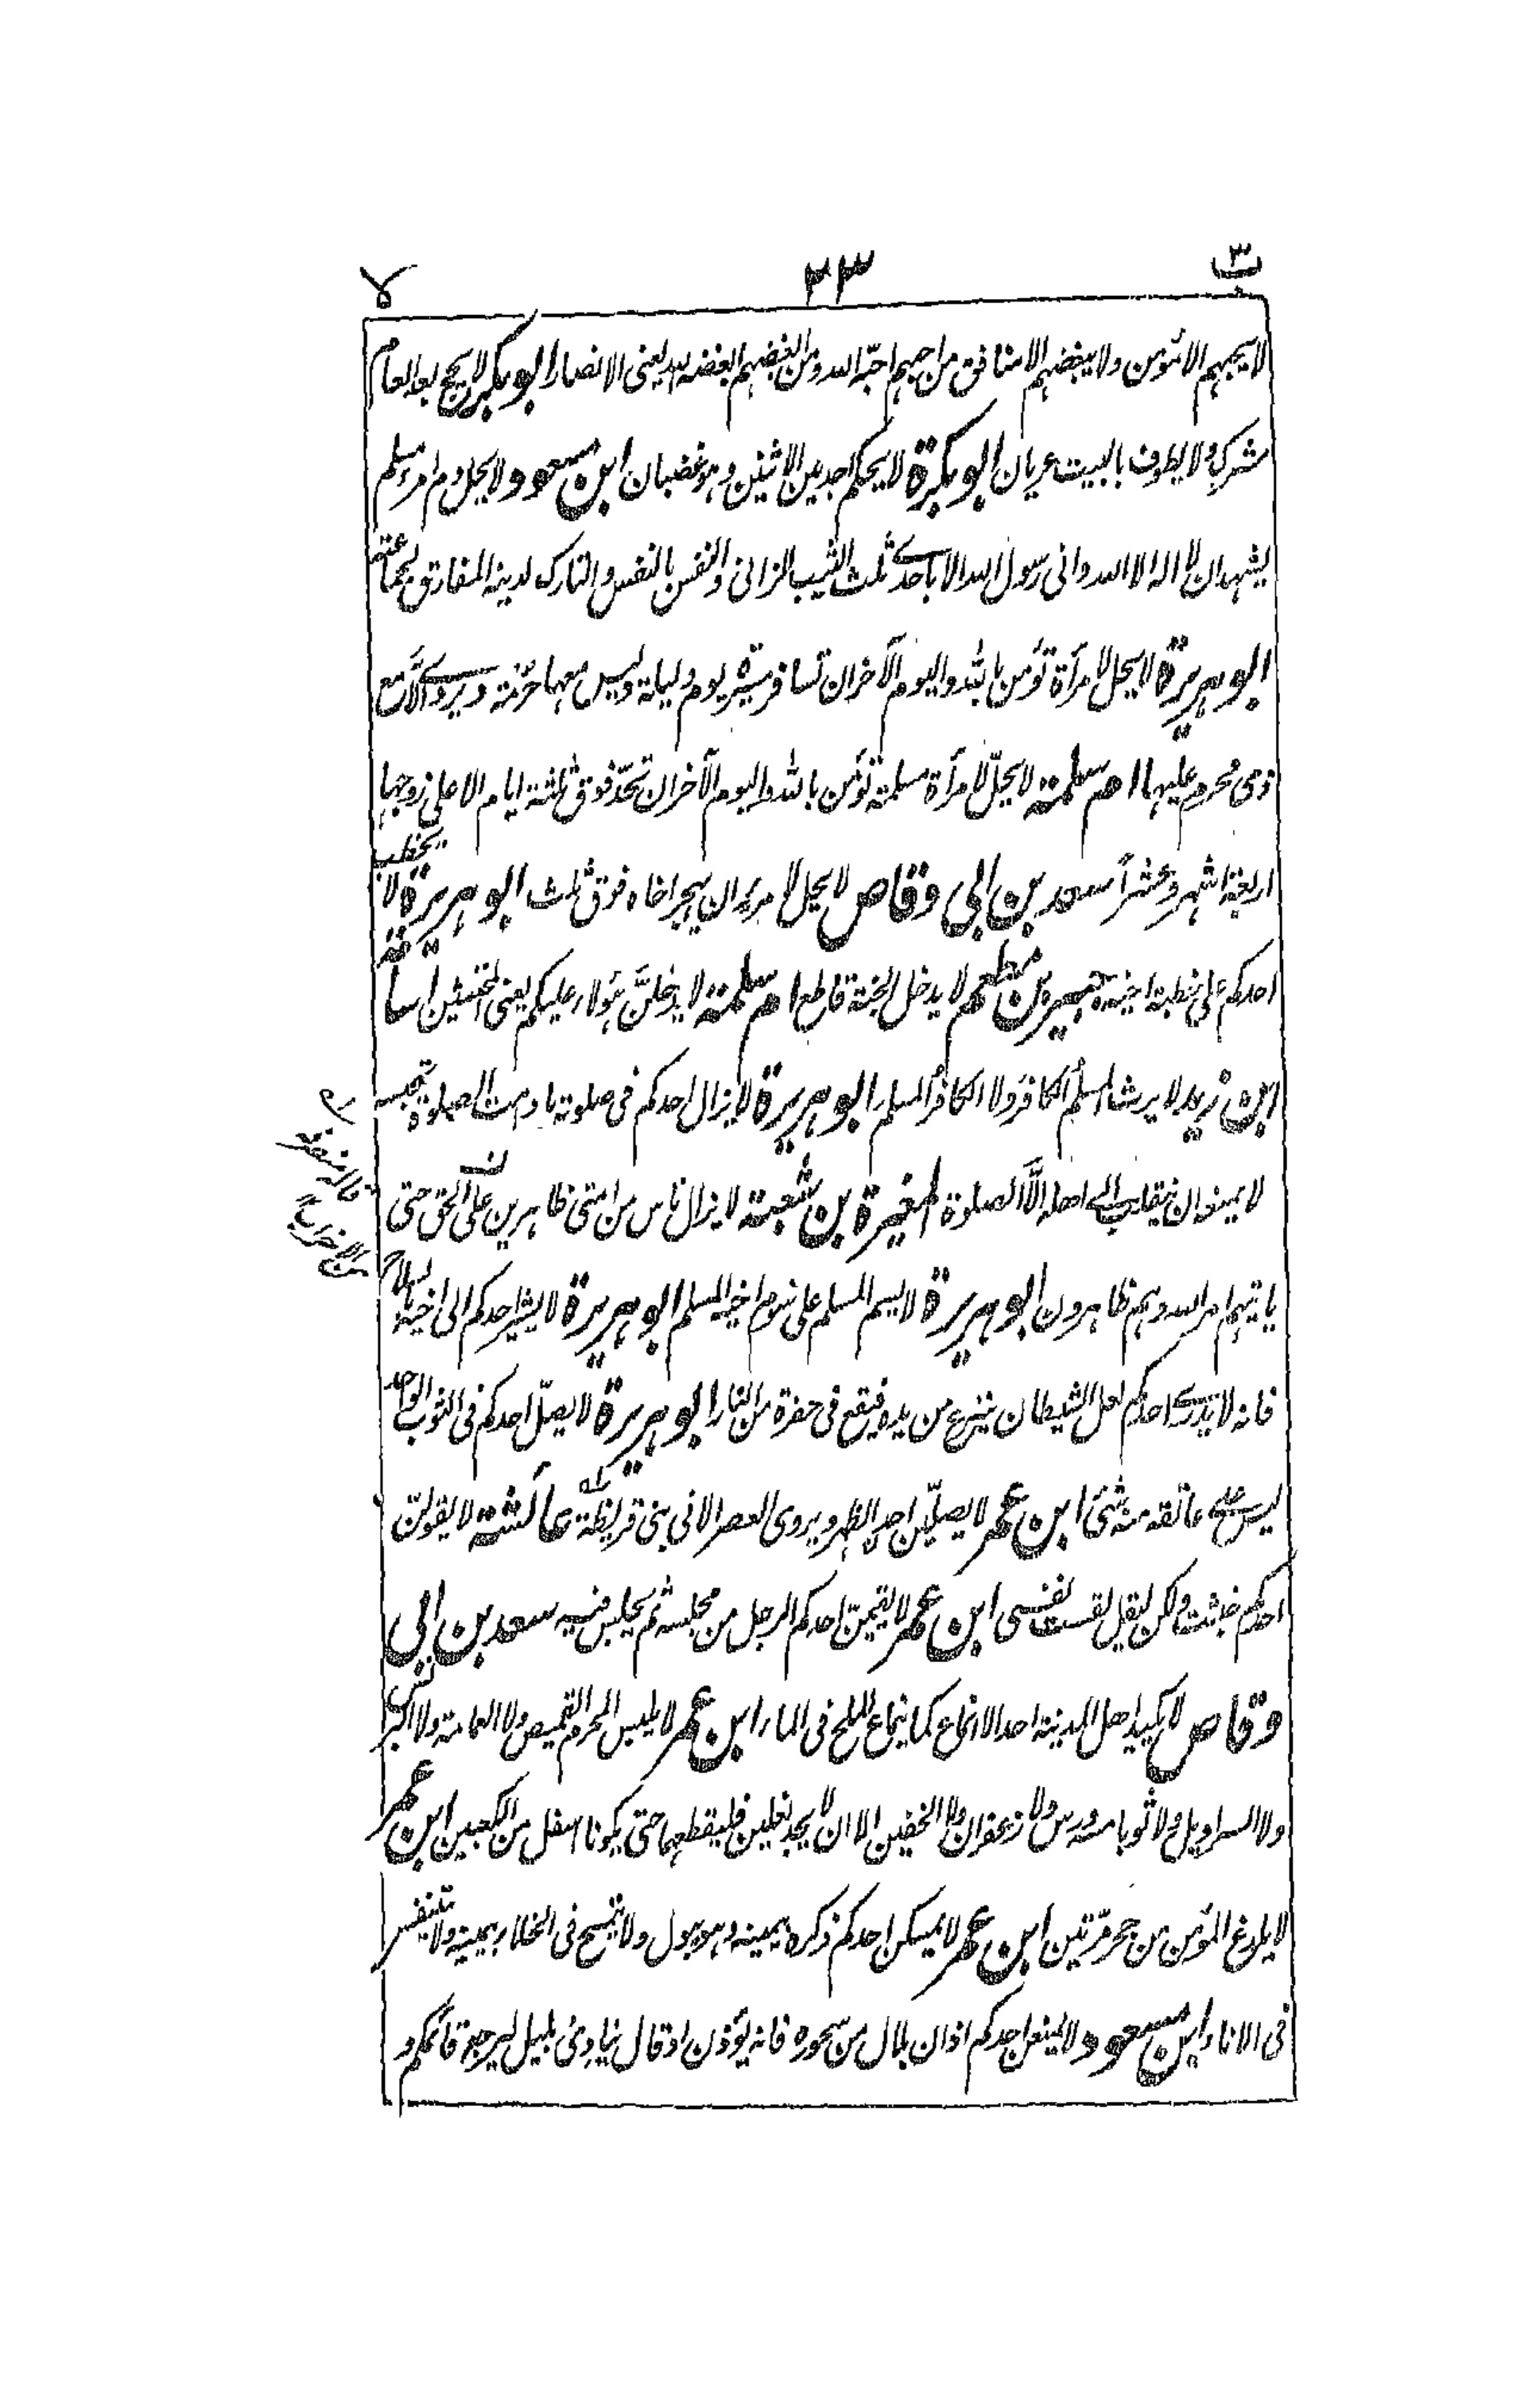 ٣ ب ٢٣ لا
لا يحبهم الا مؤمن ولا يبغضهم الا منافق من احبهم احبّه الله ومن ابغضهم ابغضه الله يعنى الانصار ابو بكر لا يحج بعد العام
مشرك ولا يطوف بالبيت عريان ابو بكرة لا يحكم احد بين الاثنين وهو غضبان ابن مسعود لا يحل دم امرء مسلم
يشهد ان لا اله الا الله وانى رسول الله الا باحدى ثلث الثيب الزانى والنفس بالنفس والتارك لدينه المفارق لجماعته
ابو هريرة لا يحل لامرأة تؤمن بالله واليوم الآخر ان تسافر مسيرة يوم وليلة وليس معها حرمة ويروى الّا مع
ذى محرم عليها ام سلمة لا يحلّ لامرأة مسلمة تؤمن بالله واليوم الآخر ان تحدّ فوق ثلثة ايام الا على زوجها
اربعة اشهر وعشراً سعد بن ابى وقاص لا يحل لامرء ان يهجر اخاه فوق ثلث ابو هريرة لا يخطب
احدكم على خطبة اخيه جبير بن مطعم لا يدخل الجنة قاطع ام سلمة لا يدخلنّ هؤلاء عليكم يعنى المخنثين اسامة
ابن زيد لا يرث المسلم الكافر ولا الكافر المسلم ابو هريرة لا يزال احدكم فى صلوة ما دامت الصلوة تحبسه
لا يمنعه ان ينقلب الى اهله الّا الصلوة المغيرة بن شعبة لا يزال ناس من امتى ظاهرين على الحق حتى
ياتيهم امر الله وهم ظاهرون ابو هريرة لا يسم المسلم على سوم اخيه المسلم ابو هريرة لا يشير احدكم الى اخيه بالسلاح
فانه لا يدرى احدكم لعل الشيطان ينزع من يده فيقع فى حفرة من النار ابو هريرة لا يصلّ احدكم فى الثوب الواحد
ليس على عاتقه منه شئ ابن عمر لا يصلّين احد الظهر ويروى العصر الا فى بنى قريظة عائشة لا يقولنّ
احدكم خبثت ولكن ليقل لقست نفسى ابن عمر لا يقيمنّ احدكم الرجل من مجلسه ثم يجلس فيه سعد بن ابى
وقاص لا يكيد اهل المدينة احد الا انماع كما ينماع الملح فى الماء ابن عمر لا يلبس المحرم القميص ولا العمامة ولا البرنس
ولا السراويل ولا ثوبا مسه ورس ولا زعفران ولا الخفين الا ان لا يجد نعلين فليقطعهما حتى يكونا اسفل من الكعبين ابن عمر
لا يلدغ المؤمن من جحر مرّتين ابن عمر لا يمسكن احدكم ذكره بيمينه وهو يبول ولا يتمسح فى الخلاء بيمينه ولا يتنفس
فى الاناء ابن مسعود لا يمنعن احدكم اذان بلال من سحوره فانه يؤذن او قال ينادى بليل ليرجع قائمكم و